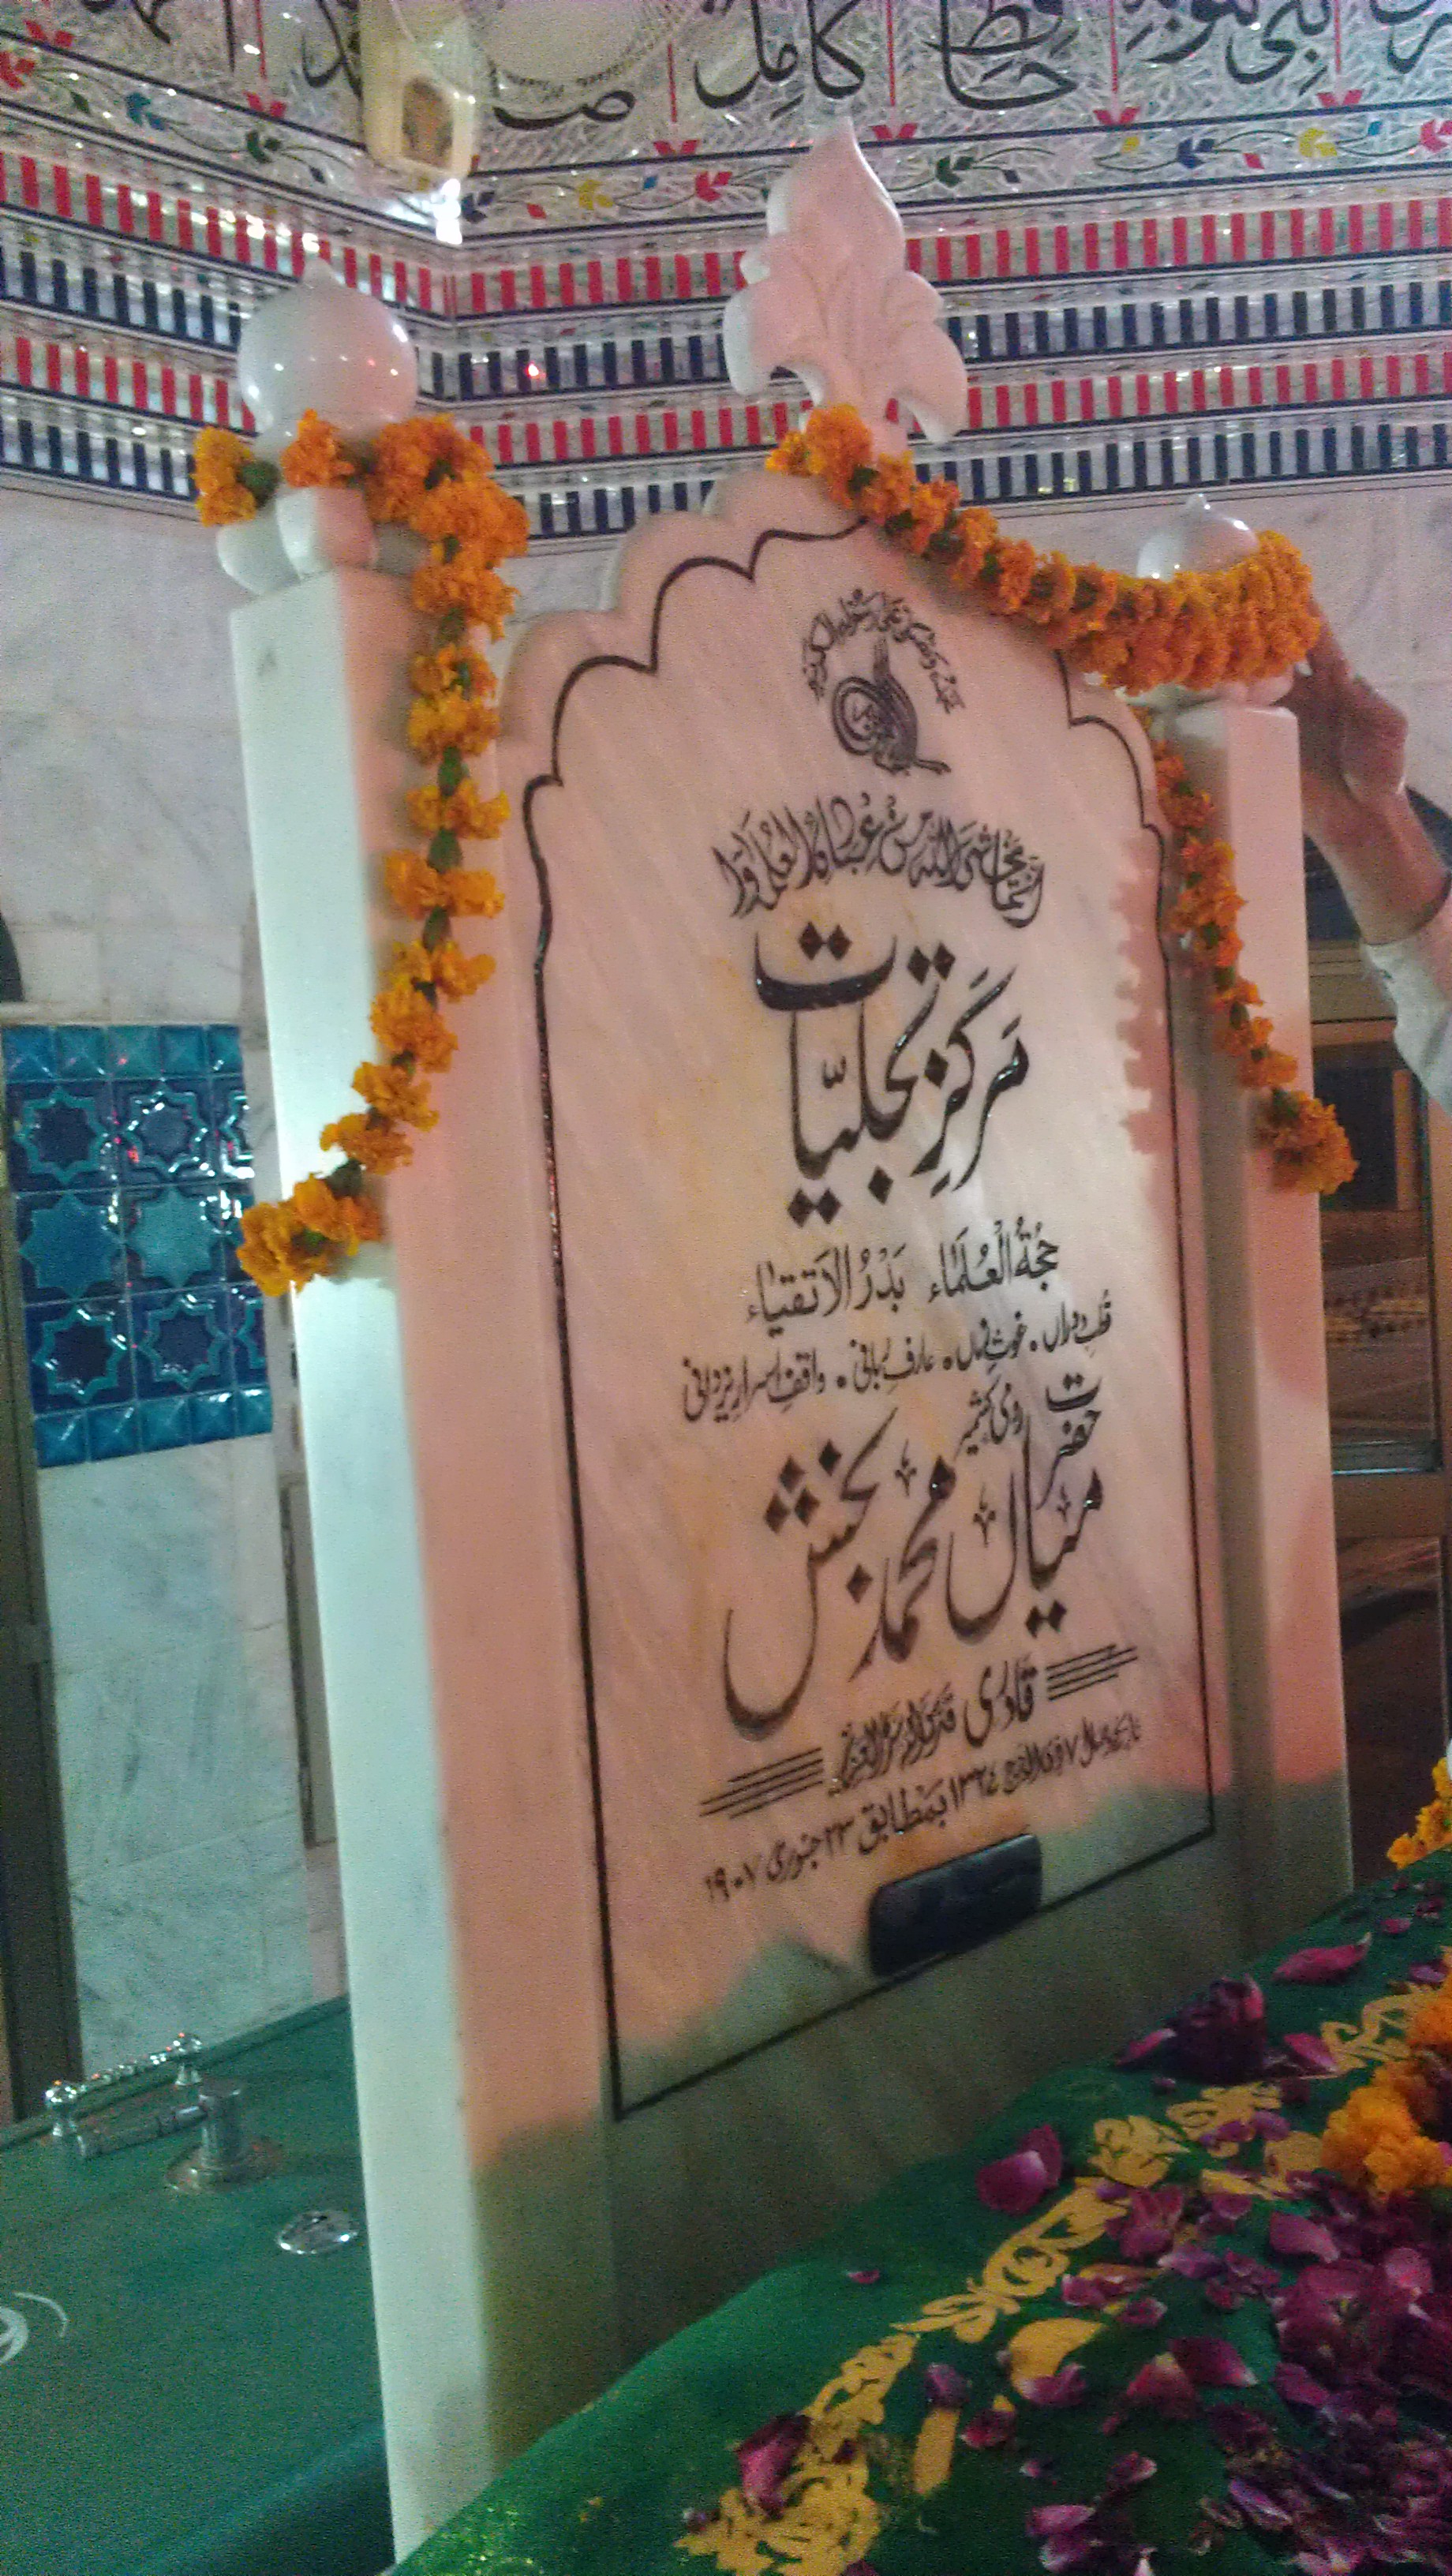 کامل
نحمده ونصلی علی رسوله الکریم
انما یخشی الله من عباده العلمٰؤا
مرکزِ تجلیّات
حُجۃُ الْعُلَمَاء بَدْرُ الاَتقیَاء
قطبِ دوراں • غوثِ زماں • عارفِ ربانی • واقفِ اسرارِ یزدانی
حضرت رومیٔ کشمیر
میاں محمد بخش
قادری قدس اللہ سرہ العزیز
تاریخ وصال ۷ ذی الحج ۱۳۲۴ بمطابق ۲۳ جنوری ۱۹۰۷